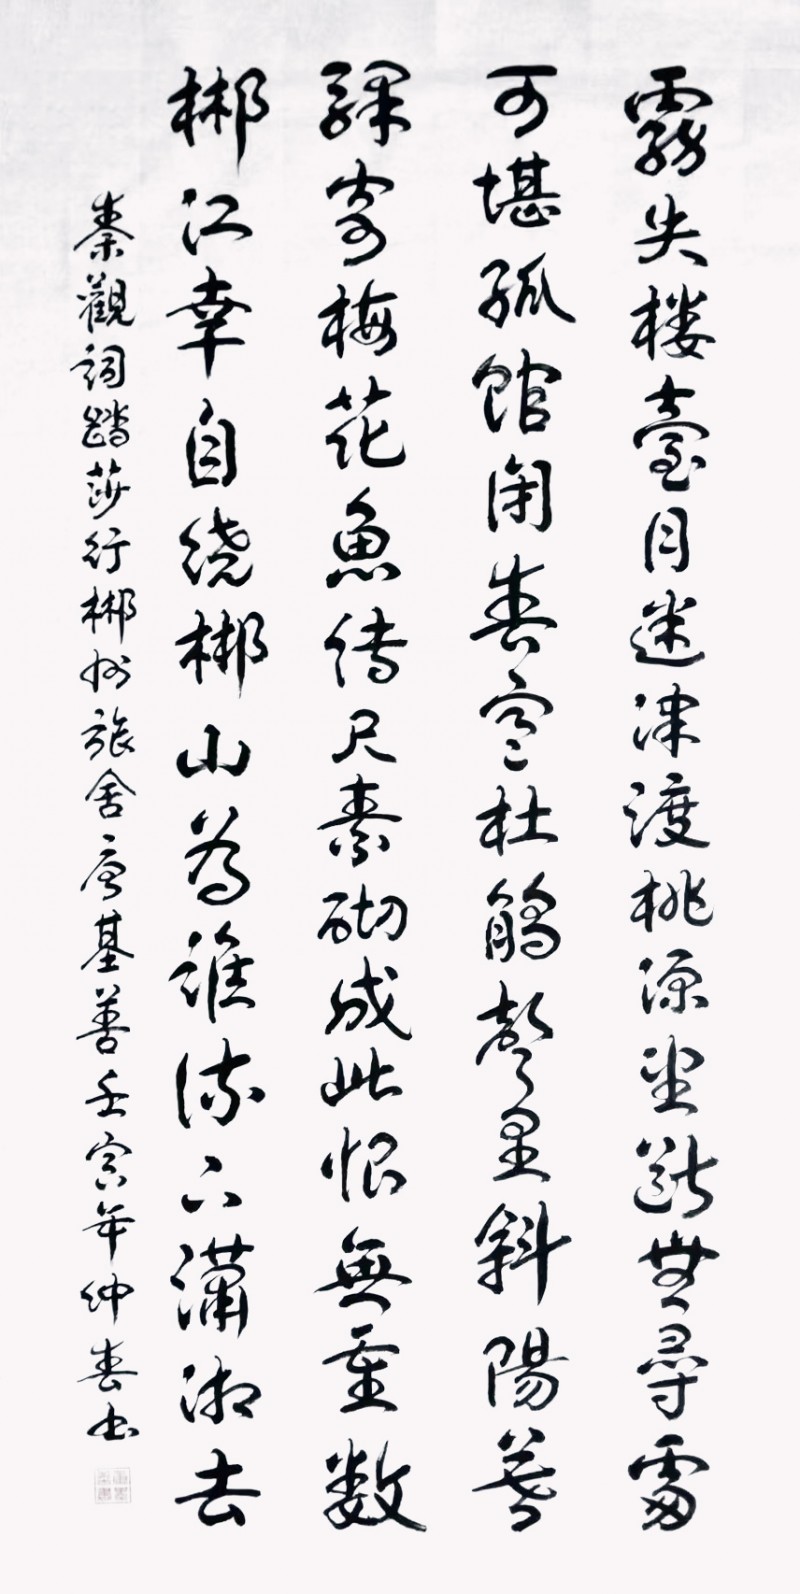 霧失楼臺月迷津渡桃源望斷無尋處
可堪孤館閉春寒杜鵑聲里斜陽暮
驛寄梅花魚傳尺素砌成此恨無重数
郴江幸自绕郴山為誰流下瀟湘去
秦觀詞踏莎行郴州旅舍唐基善壬寅年仲春书